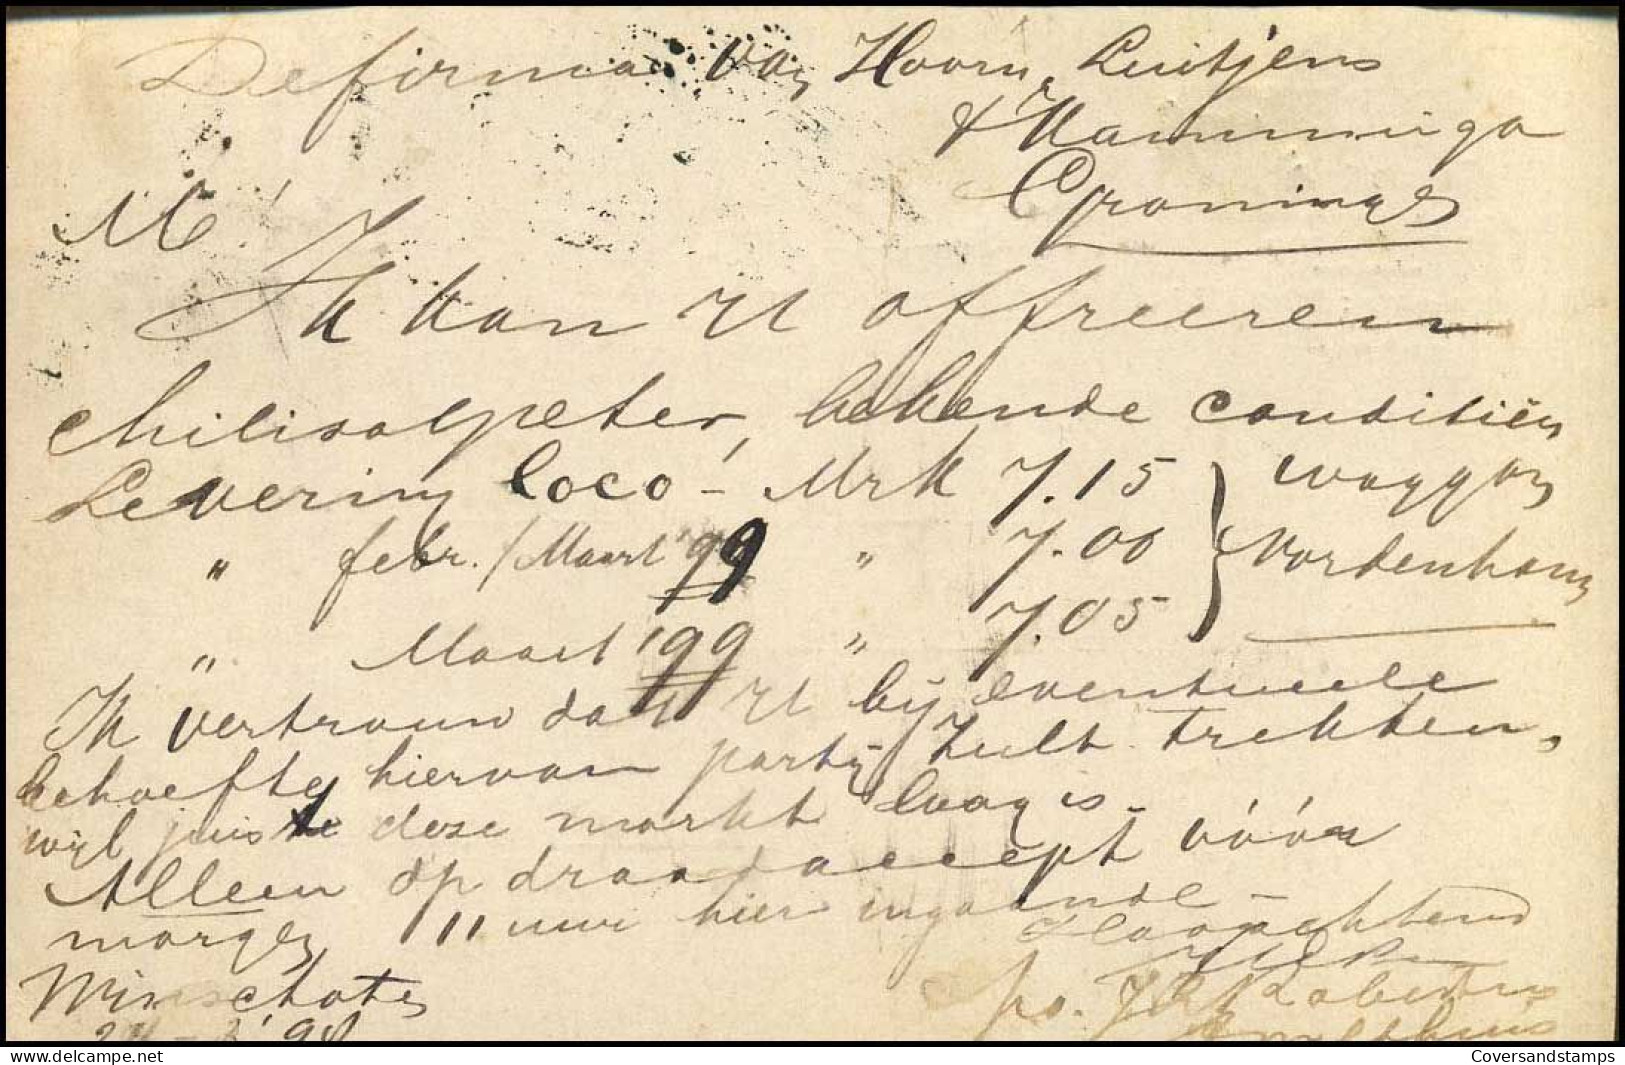 De firma van Hoorn, Luitjens
& Kamminga
Groningen
M!
Ik kan Ul offreeren
Chilisalpeter, bekende conditiën
Levering loco - Mrk 7.15 } waggon
" febr./Maart '99 " 7.00 } Nordenham
" Maart '99 " 7.05
Ik vertrouw dat Ul bij eventueele
behoefte hiervan partij zult trekken,
wijl juist deze markt laag is -
Alleen op draadaccept vóór
morgen 11 uur hier ingaande -
Hoogachtend
Winschoten
po.
CoversandStamps